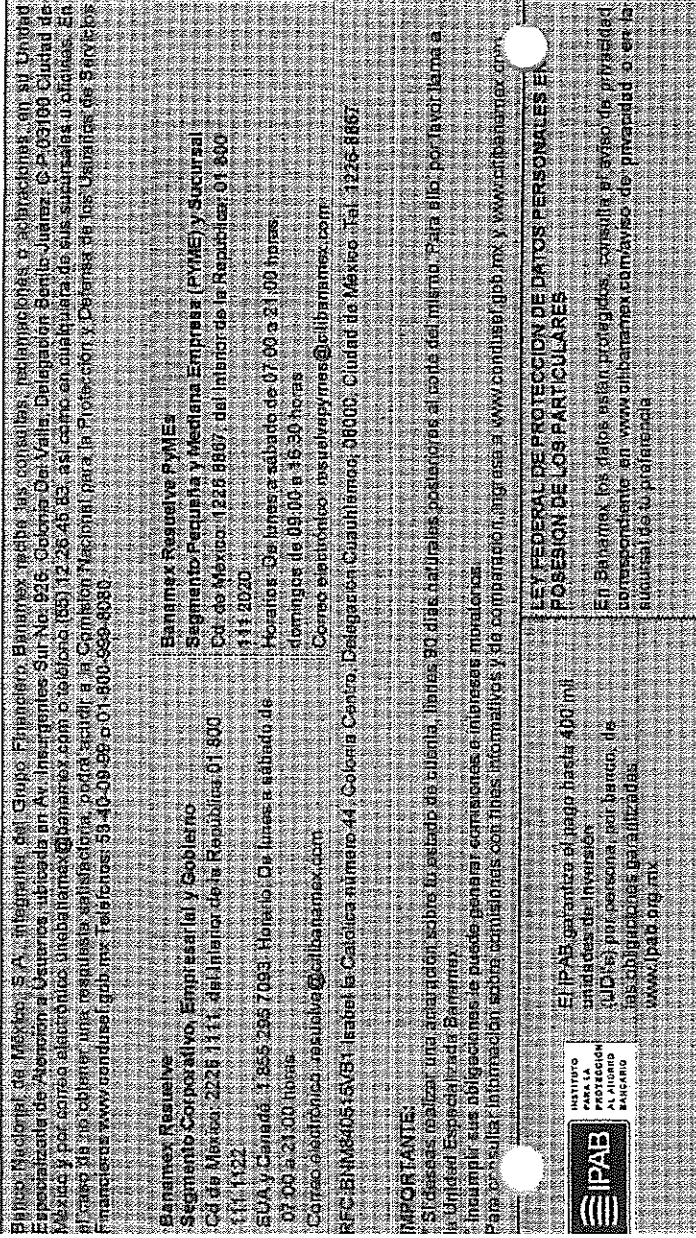 Banco Nacional de México, S.A., integrante del Grupo Financiero Banamex recibe las consultas, reclamaciones o aclaraciones, en su Unidad
Especializada de Atención a Usuarios, ubicada en Av. Insurgentes Sur No. 926, Colonia Del Valle, Delegación Benito Juárez, C.P. 03100 Ciudad de
México y por correo electrónico uneballamex@banamex.com o teléfono (55) 12 26 45 83, así como en cualquiera de sus sucursales u oficinas. En
el caso de no obtener una respuesta satisfactoria, podrá acudir a la Comisión Nacional para la Protección y Defensa de los Usuarios de Servicios
Financieros www.condusef.gob.mx Teléfonos: 53-40-09-99 o 01-800-999-8080
Banamex Resuelve
Segmento Corporativo, Empresarial y Gobierno
Cd de México: 2226 1111, del Interior de la República 01 800
111 1122
EUA y Canadá: 1 855 295 7093 Horario: De lunes a sábado de
07:00 a 21:00 horas
Correo electrónico: resuelve@citibanamex.com
Banamex Resuelve PyMEs
Segmento Pequeña y Mediana Empresa (PYME) y Sucursal
Cd. de México: 1226 8867, del Interior de la República: 01 800
111 2020
Horarios: De lunes a sábado de 07:00 a 21:00 horas
domingos de 09:00 a 16:30 horas
Correo electrónico: resuelvepymes@citibanamex.com
RFC: BNM840515VB1, Isabel la Católica número 44, Colonia Centro, Delegación Cuauhtémoc, 06000, Ciudad de México. Tel. 1226-8867
IMPORTANTE:
* Si deseas realizar una aclaración sobre tu estado de cuenta, tienes 90 días naturales posteriores al corte del mismo. Para ello por favor llama a
la Unidad Especializada Banamex.
* Incumplir sus obligaciones le puede generar comisiones e intereses moratorios
Para consultar información sobre comisiones con fines informativos y de comparación, ingresa a www.condusef.gob.mx y www.citibanamex.com
IPAB
INSTITUTO
PARA LA
PROTECCIÓN
AL AHORRO
BANCARIO
El IPAB garantiza el pago hasta 400 mil
unidades de Inversión
(UDI's) por persona, por banco, de
las obligaciones garantizadas
www.ipab.org.mx
LEY FEDERAL DE PROTECCIÓN DE DATOS PERSONALES EN
POSESIÓN DE LOS PARTICULARES.
En Banamex, los datos están protegidos, consulta el aviso de privacidad
correspondiente en www.citibanamex.com/aviso de privacidad o en la
sucursal de tu preferencia